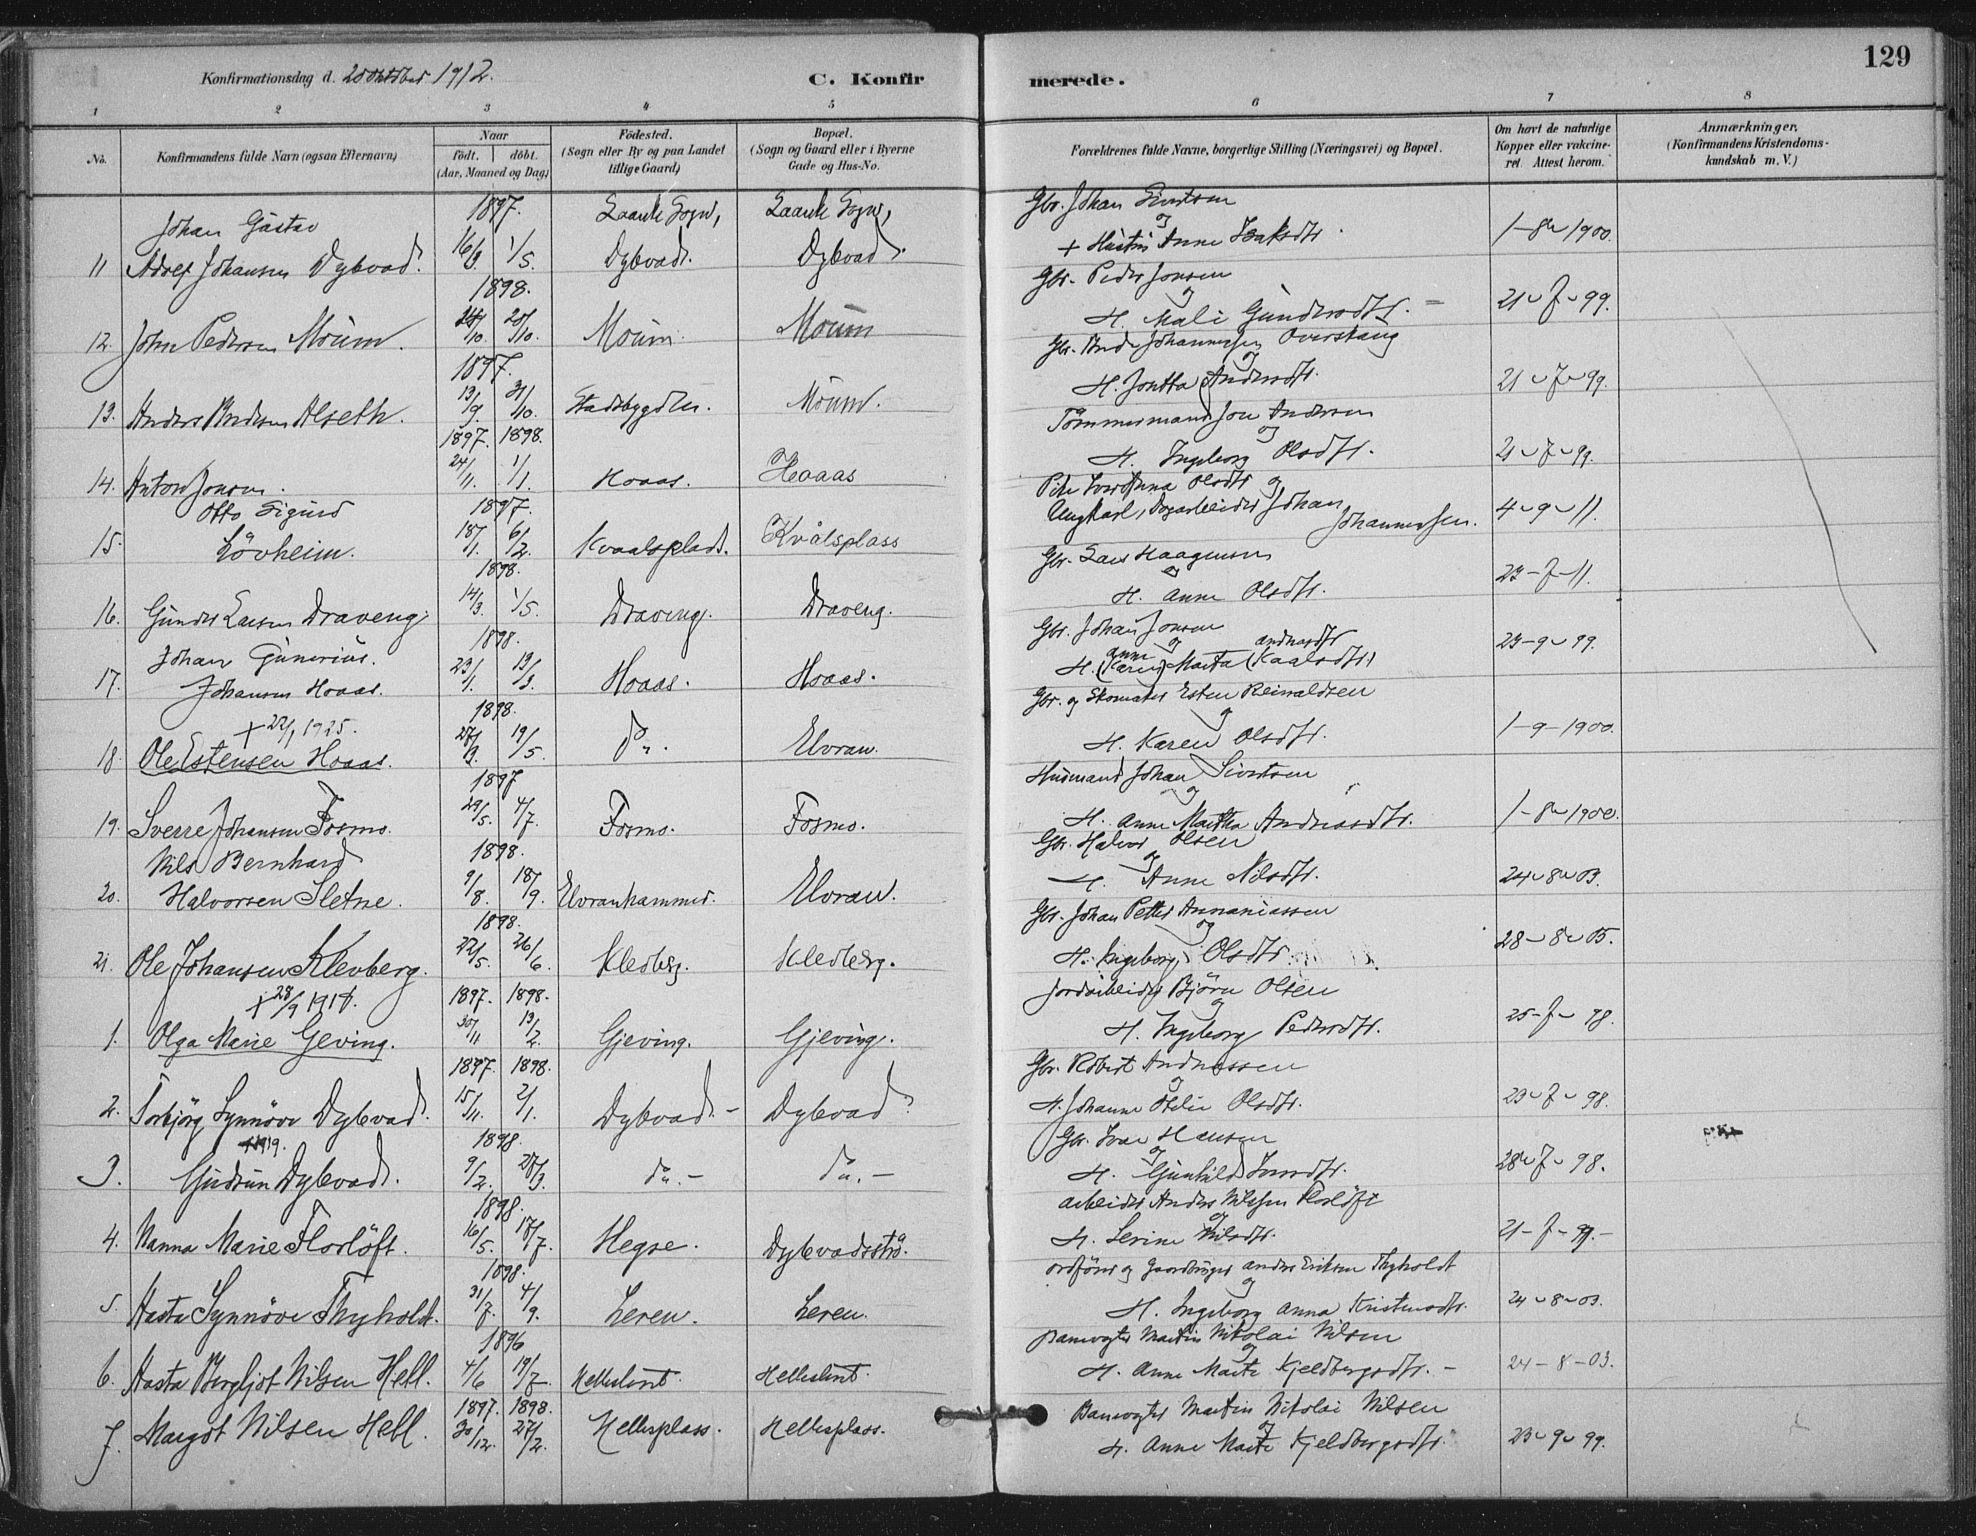 129
Konfirmationsdag d. 20 oktober 1912.
C. Konfirmerede.
1 2 3 4 5 6 7 8
No. Konfirmandens fulde Navn (ogsaa Efternavn) Naar født. døbt. (Aar, Maaned og Dag) Fødested. (Sogn eller By og paa Landet tillige Gaard) Bopæl. (Sogn og Gaard eller i Byerne Gade og Hus-No. Forældrenes fulde Navne, borgerlige Stilling (Næringsvei) og Bopæl. Om havt de naturlige Kopper eller vakcineret. Attest herom. Anmærkninger, (Konfirmandens Kristendomskundskab m. V.)
1897. Laanke Sogn, Laanke Sogn, Gbr. Johan Sivertsen
Johan Gustav og
11 Adolf Johansen Dybvad. 16/3 1/5. Dybvad. Dybvad. + Hustru Anne Isaksdtr. 1-8-1900.
1898. Gbr. Peder Jonsen
og
12. John Pedersen Moum. 20/10. Moum. Moum H. Mali Gundersdtr. 21-7-99.
1897. Johannessen Overskaug
og
13. Anders Alseth. 13/9. 31/10. Stadsbygden. Moum. H. Jonetta Andersdtr. 21-7-99.
1897. 1898. Tømmermand Jon Andersen
og
14. Anton Jonsen. 24/11. 1/1. Hoaas. Hoaas H. Ingeborg Olsdtr. 21-7-99.
Otto Sigurd 1897. Anna Olsdtr og
Ungkarl, Johan
15. Løvheim. 18/1. 6/2. Kvaalsplads. Kvålsplass Johannessen. 4-9-11.
1898. Gbr. Lars Haagensen
og
16. Gunder Larsen Draveng. 14/3. 1/5. Draveng. Draveng. H. Anne Olsdtr. 23-7-11.
Johan Gunerius. 1898. Gbr. Johan Jonsen
og
17. Johansen Hoaas. 23/1. 13/3. Hoaas. Hoaas. H. (Karen) Anne Marta 23-9-99.
+ 22/1 1925. 1898. Gbr. og Skomaker Esten Reinaldsen
og
18 Ole Estensen Hoaas. 27/3. 19/5. Do. Elvran. H. Karen Olsdtr. 1-9-1900.
1897 Husmand Johan Sivertsen
og
19. Sverre Johansen Fosmo. 29/5. 4/7. Fosmo. Fosmo. H. Anne Martha Andreasdtr. 1-8-1900.
Nils Bernhard 1898. Gbr. Halvor Olsen
og
20. Halvorsen Sletne. 9/8. 18/9. Elvranhammer. Elvran. H. Anne Nilsdtr. 24-8-03.
1898. Gbr. Johan Petter Annaniassen
og
21. Ole Johansen Klevberg. 22/5. 26/6. Klevberg. Klevberg. H. Ingeborg Olsdtr. 28-8-05.
+ 28/9 1918. 1897. 1898. Jordarbeider Bjørn Olsen
og
1. Olga Marie Geving. 30/11 13/2. Gjeving. Gjeving. H. Ingeborg Pedersdtr. 25-7-98.
1897. 1898. Gbr. Robert Andreassen
og
2. Torbjørg Synnøve Dybvad. 15/11. 2/1. Dybvad - Dybvad H. Johanne Otelie Olsdtr. 23-7-98.
+1919. 1898 Gbr. Ivar Hansen
og
3. Gudrun Dybvad. 9/2. 27/3. do. - do. - H. Gunhild Iversdtr. 28-7-98.
1898. Arbeider Anders Nilssen Florløft
og
4. Nanna Marie Florløft. 16/5. 17/7. Hegre. Dybvadsstrø. H. Serine Nilsdtr. 21-7-99.-
1898. Ordfører og Gaardbruger Anders Eriksen Thyholdt
og
5. Aasta Synnøve Thyholdt. 31/7. 4/9. Leren. Leren. H. Ingeborg Anna Kristensdtr. 24-8-03.
1896 Banevogter Martin Nikolai Nilsen
og
6. Aasta Bergljot Nilsen Hell. 4/6 19/7. Hellesletvt. Hellesletvt. H. Anne Marta Kjeldbergsdtr. - 24-8-03.
1897. 1898. Banevogter Martin Nikolai Nilsen
og
7. Margot Nilsen Hell. 30/12. 27/2. Hellesplass. Hellesplass. H. Anne Marta Kjeldbergsdtr. 23-9-99.